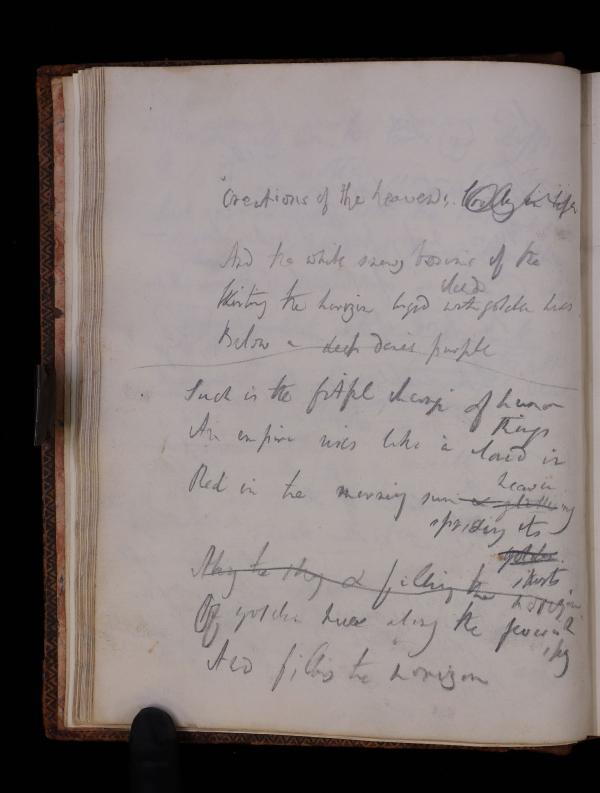 Creations of the heavens.
And the white snowy bosoms of the
cloud
Skirting the horizon tinged with golden hues
Below a deep dense purple
Such is the fitful change of human
things
An empire rises like a cloud in
heaven
Red in the morning sun & glittering
spreading its
golden
skirts
Along the sky & filling the horizon
Of golden hues along the
sky
And fills the horizon